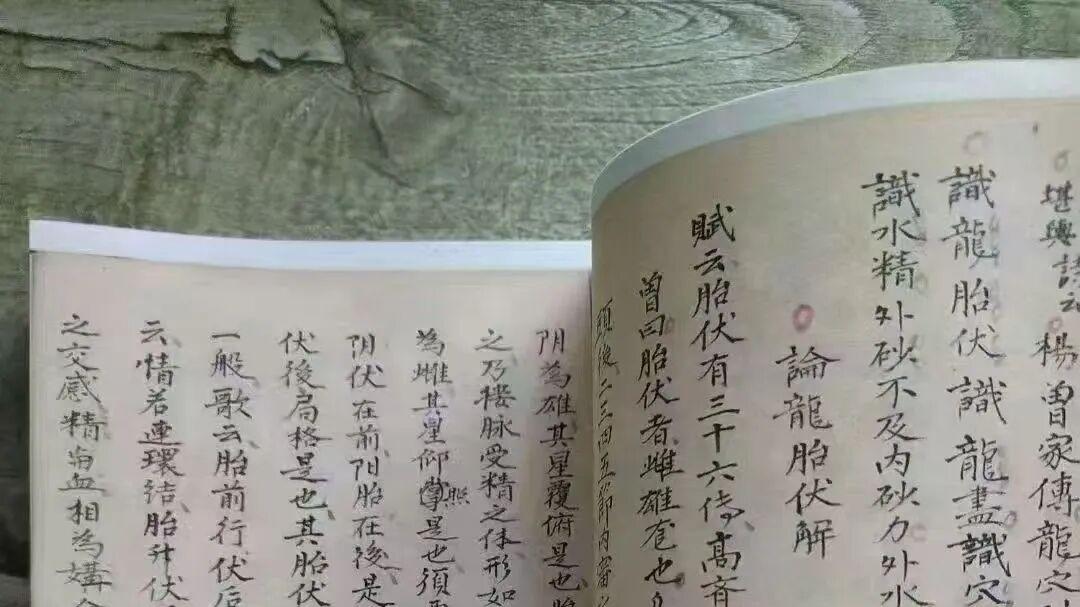 堪輿詩云楊曽家傳龍穴
識龍胎伏識龍盡識穴
識水精外砂不及内砂力外水
論龍胎伏解
賦云胎伏有三十六傳高
曽曰胎伏者雌雄也
頭後二三四五節内
阴為雄其星覆俯是也
之乃接脉受精之体形如
為雌其星仰掌是也須
照
阴伏在前阳胎在後是
伏後局格是也其胎伏
一般歌云胎前行伏后
云情若連環結胎升伏
之交感精與血相為媾